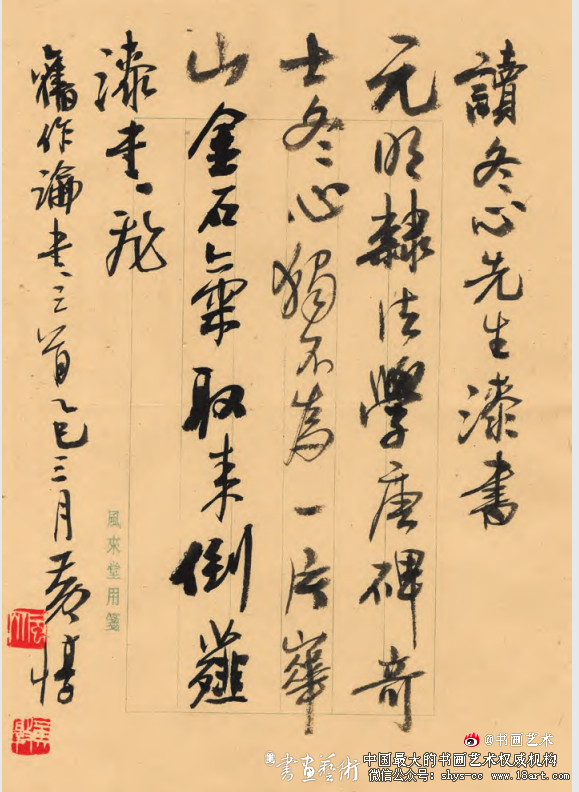 讀冬心先生漆書
元明隸法學唐碑奇
士冬心獨不為一片崋
山金石氣取來倒薤
漆書飛
舊作論書三首乙巳三月黃惇
風來堂用箋
@书画艺术
書画藝術
中国最大的书画艺术权威机构
微信公众号: shys-cc www.18art.com